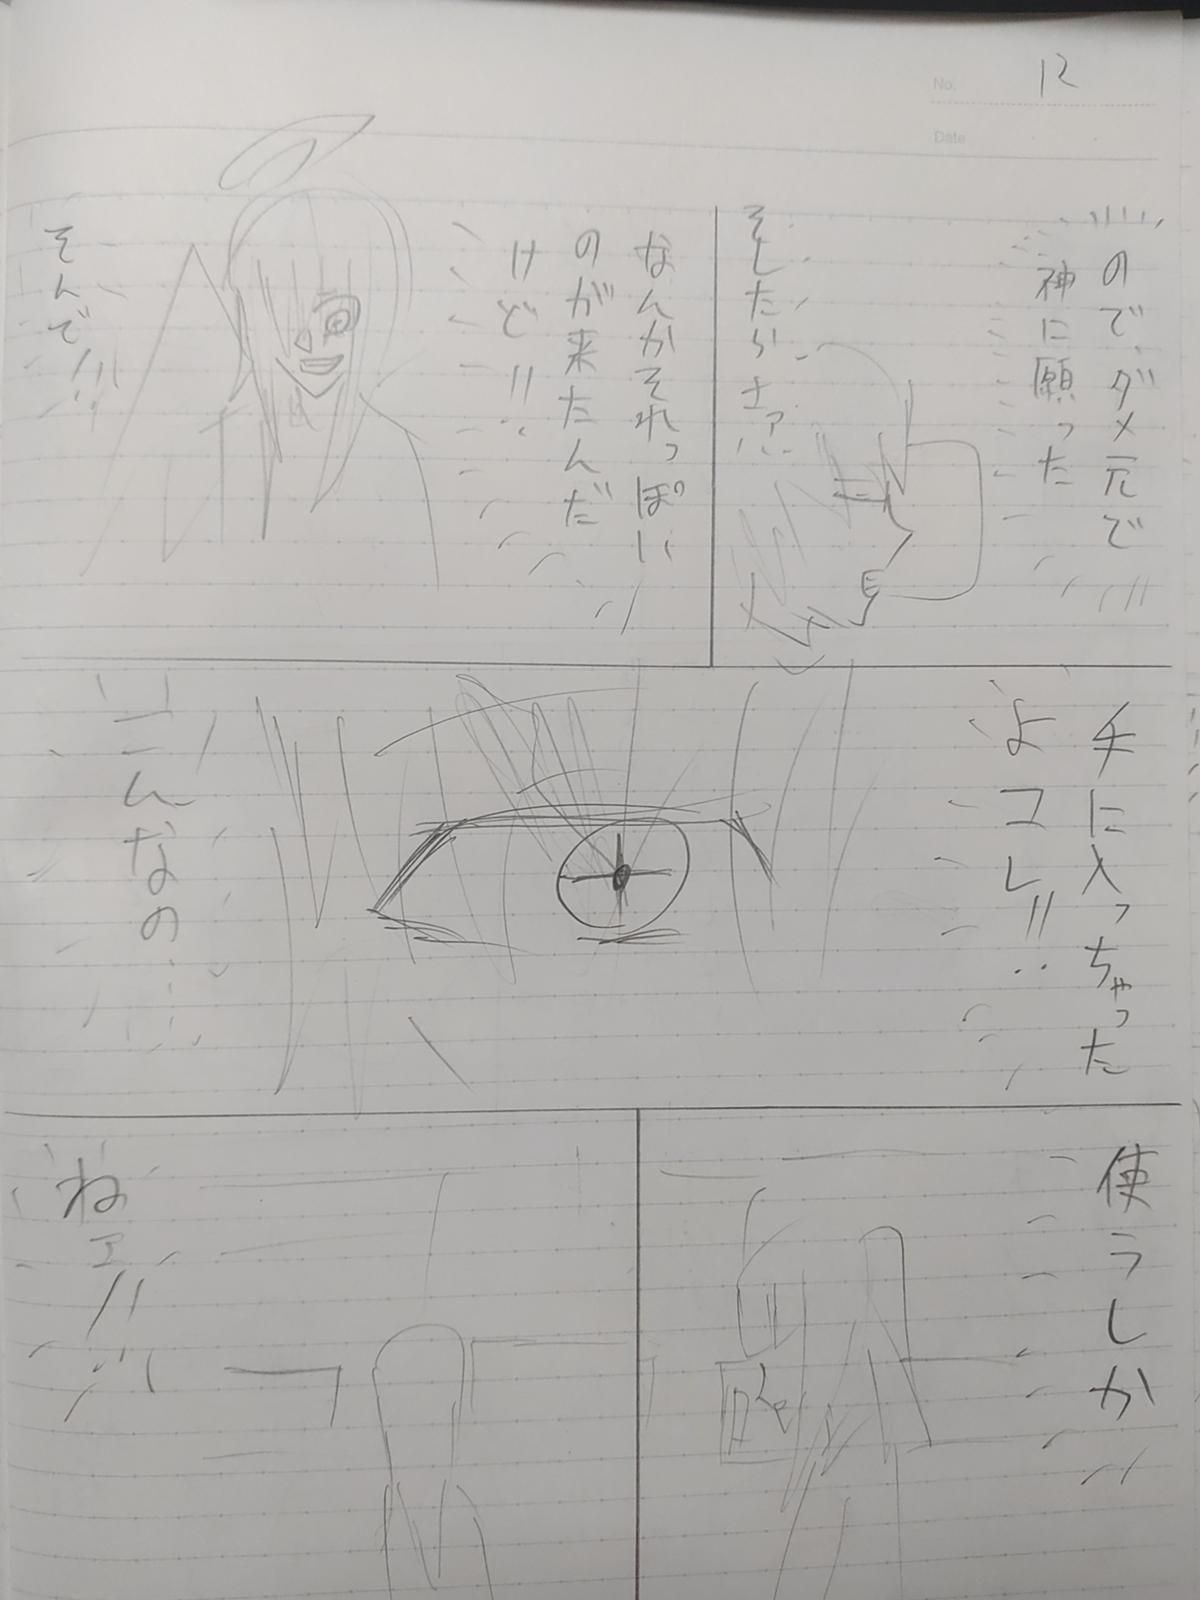 No. 12
Date
ので、ダメ元で
神に願った
そしたらさァ!!
なんかそれっぽい
のが来たんだ
けど!!
そんで!!!
手に入っちゃった
よコレ!!
こんなの…
使うしか
ねェ!!